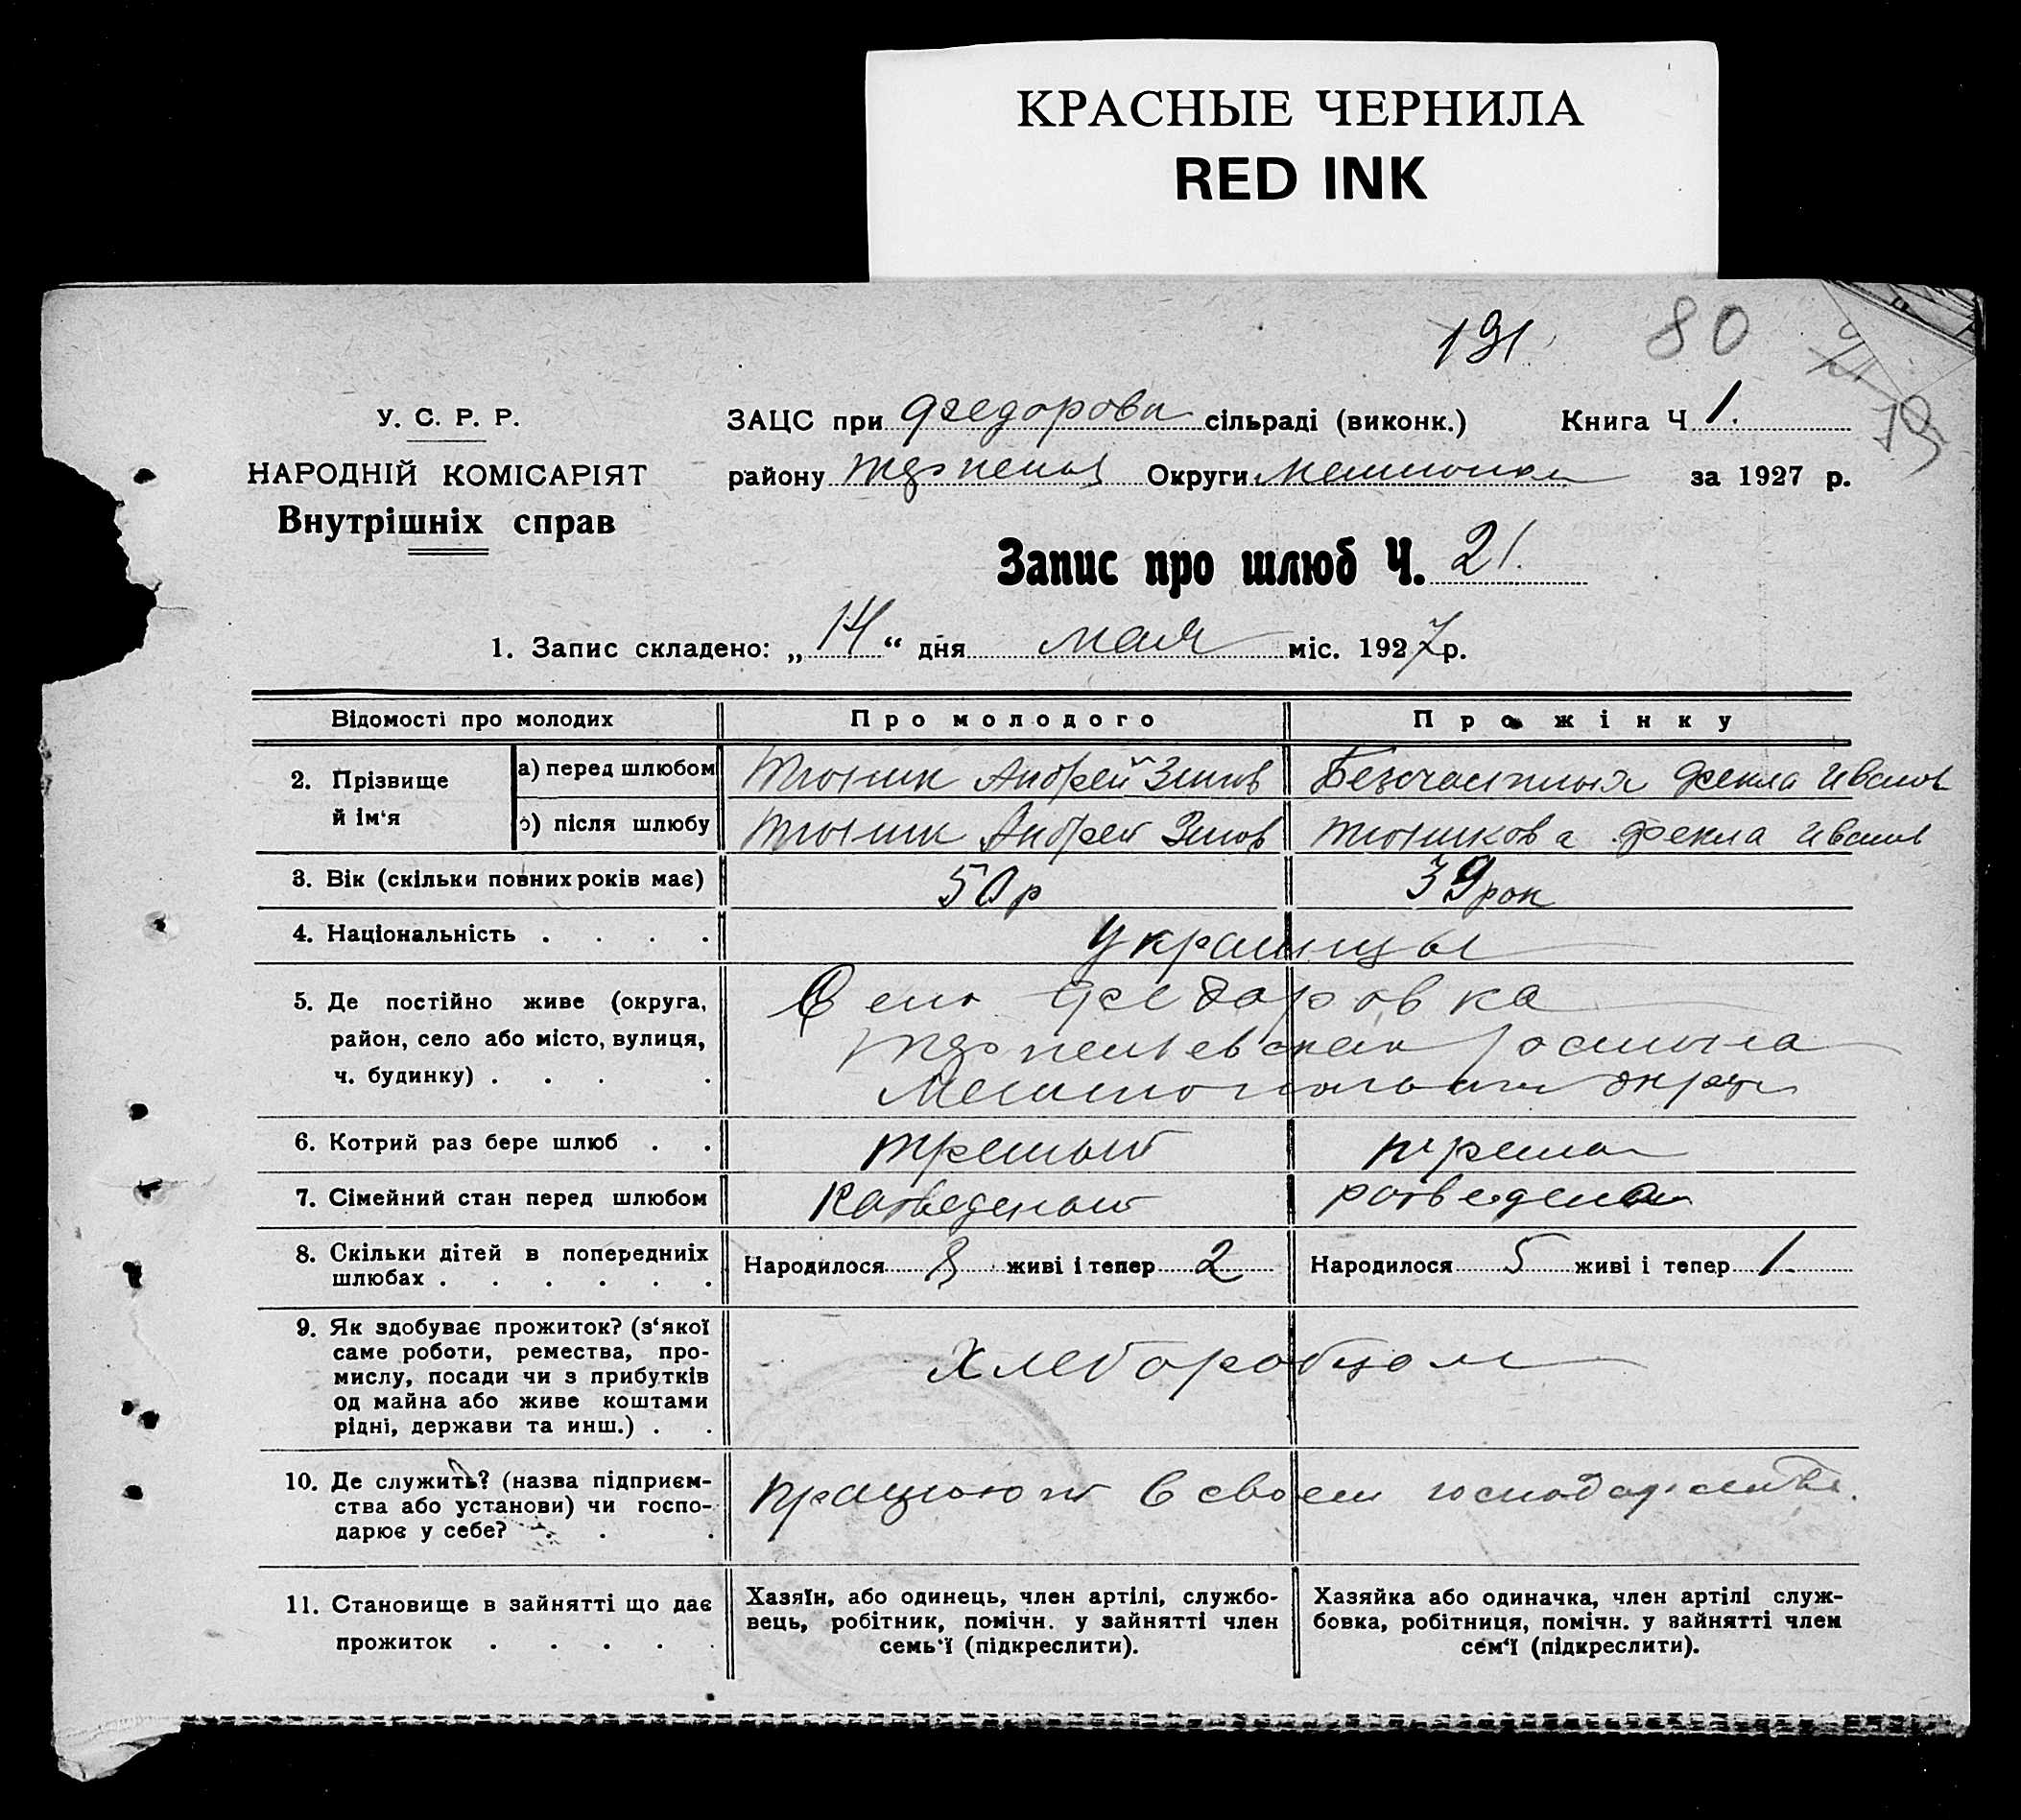 КРАСНЫЕ ЧЕРНИЛА
RED INK
191
80
У. С. Р. Р.
НАРОДНІЙ КОМІСАРІЯТ
Внутрішніх справ
ЗАЦС при Федоров сільраді (виконк.) Книга Ч 1.
району Округи за 1927 р.
Запис про шлюб Ч. 21.
1. Запис складено: „14“ дня мая міс. 1927 р.
Відомості про молодих Про молодого Про жінку
2. Прізвище й ім‘я
а) перед шлюбом Тюник Андрей Зинов Безсчастная Фекла Иванов
б) після шлюбу Тюник Андрей Зинов Тюникова Фекла Иванов
3. Вік (скільки повних років має) 50 р 39 рок
4. Національність . . . . Украинцы
5. Де постійно живе (округа, Село Федоровка
район, село або місто, вулиця, района
ч. будинку) . . . . Мелитопольськ округи
6. Котрий раз бере шлюб . . третий
7. Сімейний стан перед шлюбом Разведеный разведена
8. Скільки дітей в попередниіх Народилося 8 живі і тепер 2 Народилося 5 живі і тепер 1.
шлюбах . . . . . .
9. Як здобуває прожиток? (з‘якої
саме роботи, ремества, про-
мислу, посади чи з прибутків Хлеборобцом
од майна або живе коштами
рідні, держави та инш.) . .
10. Де служить? (назва підприєм-
ства або установи) чи госпо- працюют в своем господарстве.
дарює у себе? . . .
11. Становище в зайнятті що дає
прожиток . . . . .
Хазяїн, або одинець, член артілі, службо-
вець, робітник, помічн. у зайнятті член
семь‘ї (підкреслити).
Хазяйка або одиначка, член артілі служ-
бовка, робітниця, помічн. у зайнятті член
сем‘ї (підкреслити).